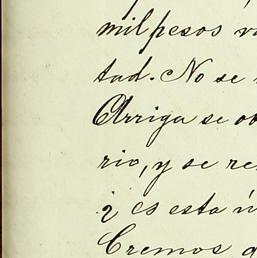 mil pesos
tad. No se
Arriga se
rio, y se
es esta
Cremos